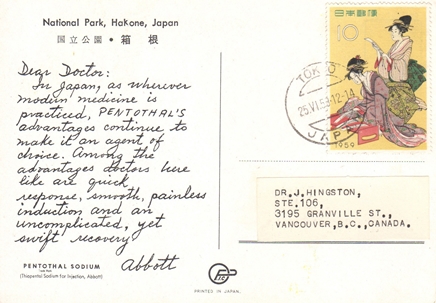 National Park, Hakone, Japan
国立公園・箱根
Dear Doctor:
In Japan, as wherever
modern medicine is
practiced, PENTOTHAL'S
advantages continue to
make it an agent of
choice. Among the
advantages doctors here
like are quick
response, smooth, painless
induction and an
uncomplicated, yet
swift recovery
Abbott
PENTOTHAL SODIUM
(Thiopental Sodium for Injection, Abbott)
日本郵便
10
1959
TOKYO
25.VI.59.12-14
JAPAN
DR.J.HINGSTON,
STE.106,
3195 GRANVILLE ST.,
VANCOUVER,B.C.,CANADA.
PRINTED IN JAPAN.